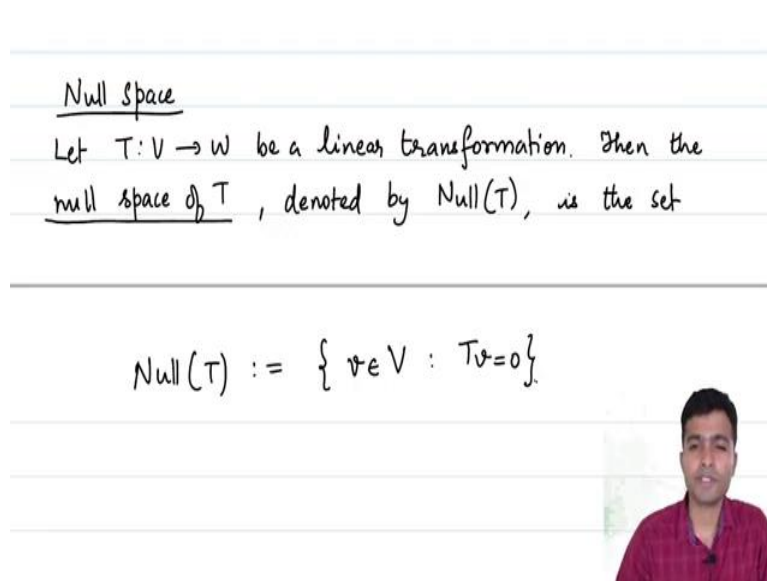 Null space
Let T: V → W be a linear transformation. Then the
null space of T, denoted by Null(T), is the set
Null(T) := { v ∈ V : Tv=0}.